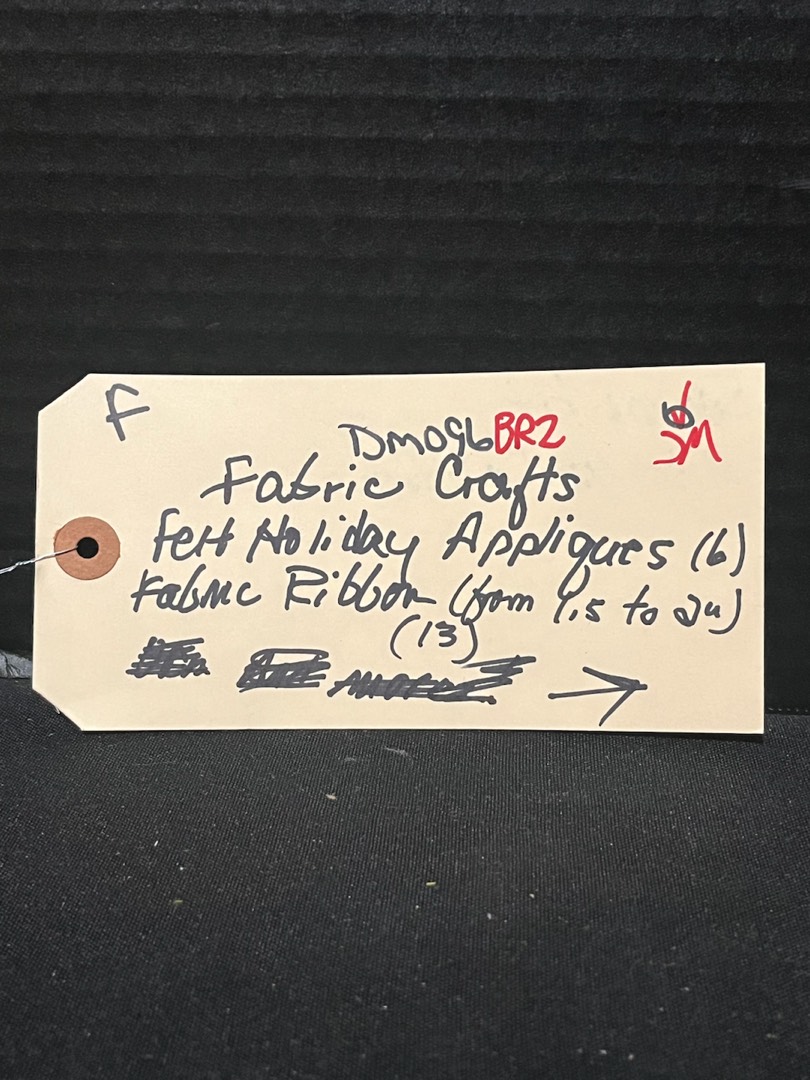 F
DM096BR2
JM
Fabric Crafts
Felt Holiday Appliques (6)
Fabric Ribbon (from 1.5 to 24)
(13)